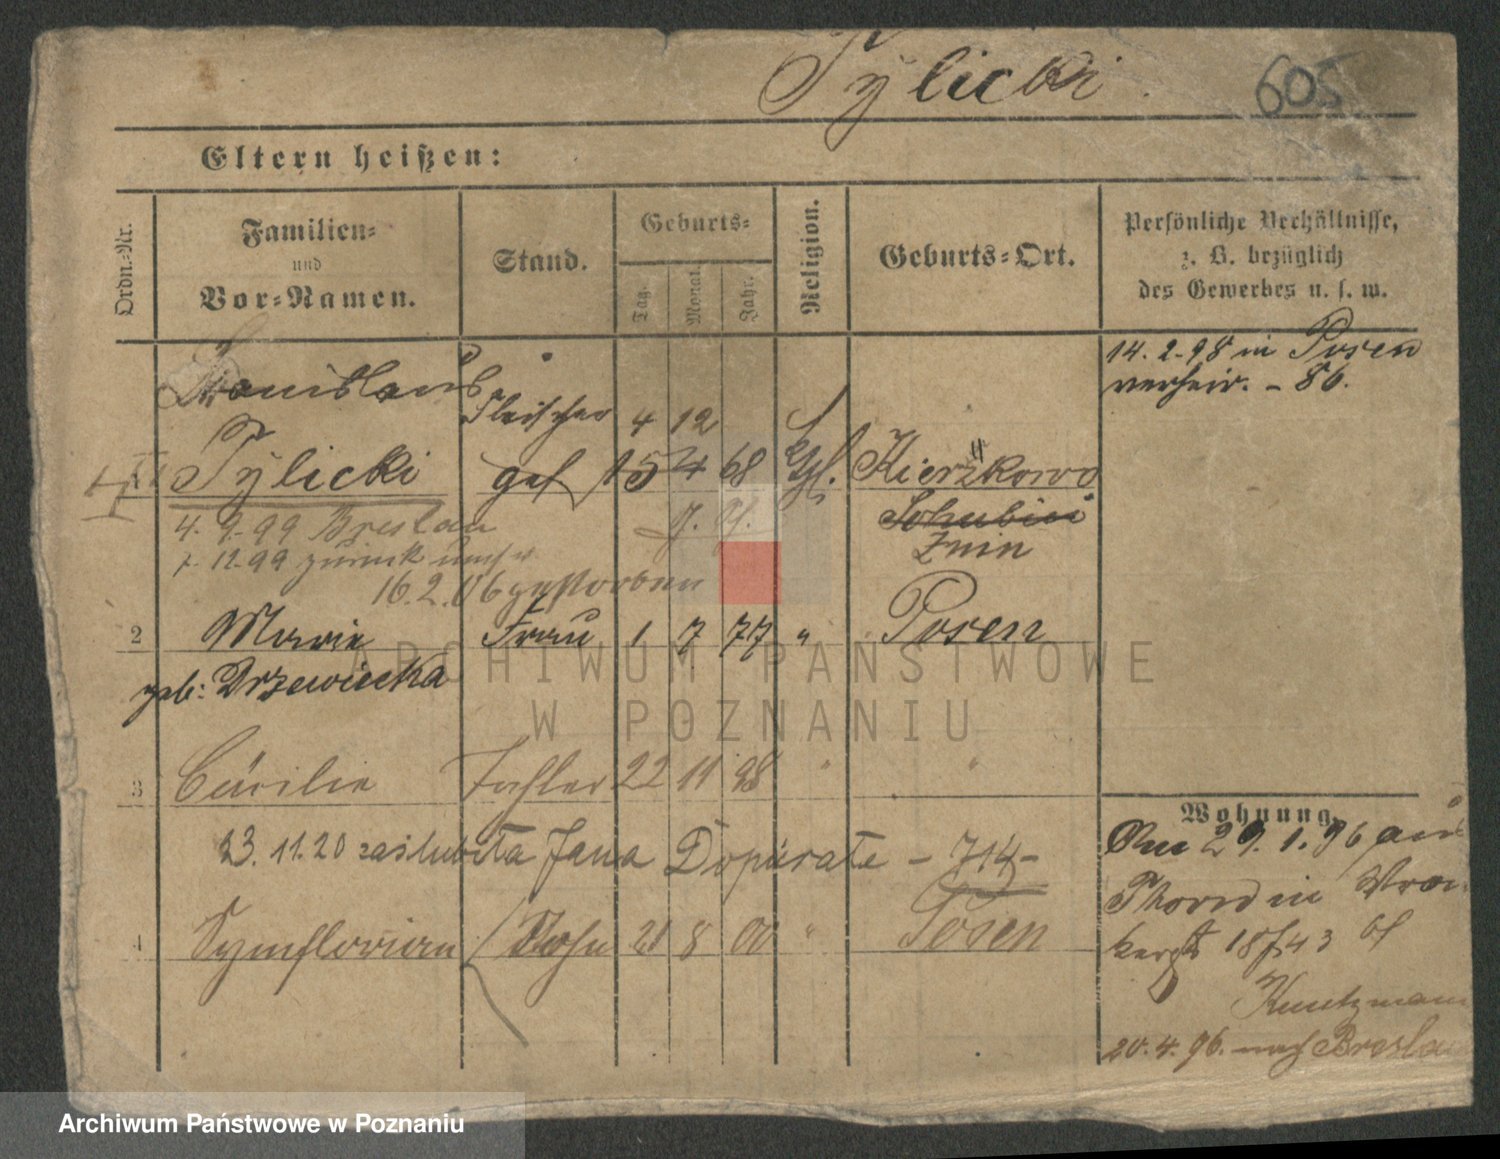 Tylicki. 605
Eltern heißen:
Ordn.-Nr.
Familien-
und
Vor-Namen.
Stand.
Geburts-
Tag.
Monat.
Jahr.
Religion.
Geburts-Ort.
Persönliche Verhältnisse,
z. B. bezüglich
des Gewerbes u. s. w.
14. 2. 98 in Posen
verheir. - 86.
Stanislaus Fleischer 4 12
Tylicki 15 4 68 Kierzkowo
4. 9. 99 Breslau Schubin
7. 12. 99 zurück Znin
16. 2. 06 gestorben
2 Marie Frau 1 7 77 " Posen
geb: Drzewiecka
3 Cäcilie Tochter 22 11 98 " "
23. 11. 20 zaślubiła Jana - 714 -
4 Symflorian Sohn 21 8 00 " Posen
Wohnung.
Am 29. 1. 96 aus
Thorn in
18/43 bf
20. 4. 96. nach Breslau
ARCHIWUM PAŃSTWOWE
W POZNANIU
Archiwum Państwowe w Poznaniu